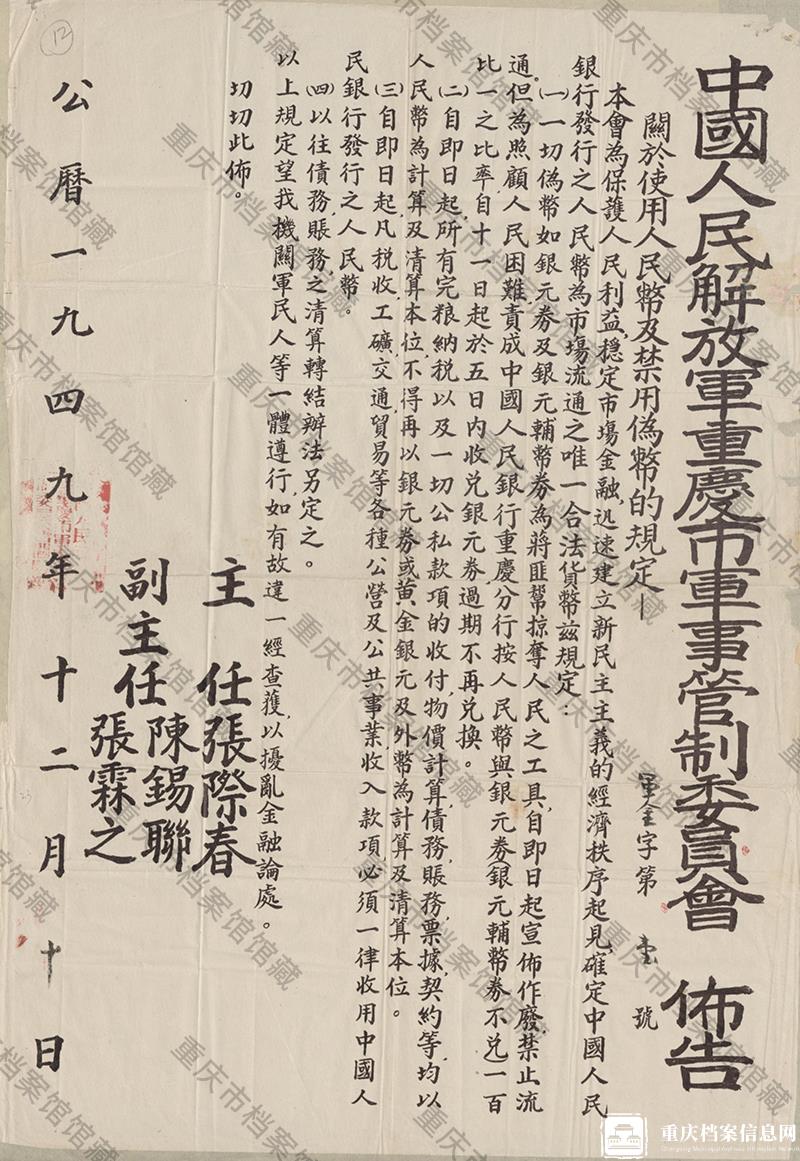 中國人民解放軍重慶市軍事管制委員會 佈告
軍金字第 壹 號
關於使用人民幣及禁用偽幣的規定—
本會為保護人民利益,穩定市塲金融,迅速建立新民主主義的經濟秩序起見,確定中國人民
銀行發行之人民幣為市塲流通之唯一合法貨幣兹規定：
㈠一切偽幣如銀元券及銀元輔幣券為蔣匪幫掠奪人民之工具,自即日起宣佈作廢,禁止流
通。但為照顧人民困難,責成中國人民銀行重慶分行按人民幣與銀元券(銀元輔幣券不兑)一百
比一之比率自十一日起於五日內收兑銀元券過期不再兑換。
㈡自即日起,所有完粮納税以及一切公私款項的收付,物價計算,債務,賬務,票據,契約等,均以
人民幣為計算及清算本位,不得再以銀元券或黄金銀元及外幣為計算及清算本位。
㈢自即日起凡税收,工礦交通貿易等各種公營及公共事業,收入款項,必須一律收用中國人
民銀行發行之人民幣。
㈣以往債務,賬務,之清算轉結辦法另定之。
以上規定望我機關軍民人等一體遵行,如有故違一經查獲,以擾亂金融論處。
切切此佈。
主任張際春
副主任陳錫聯
張霖之
公曆一九四九年十二月十日
12
重庆市档案馆馆藏
重庆档案信息网